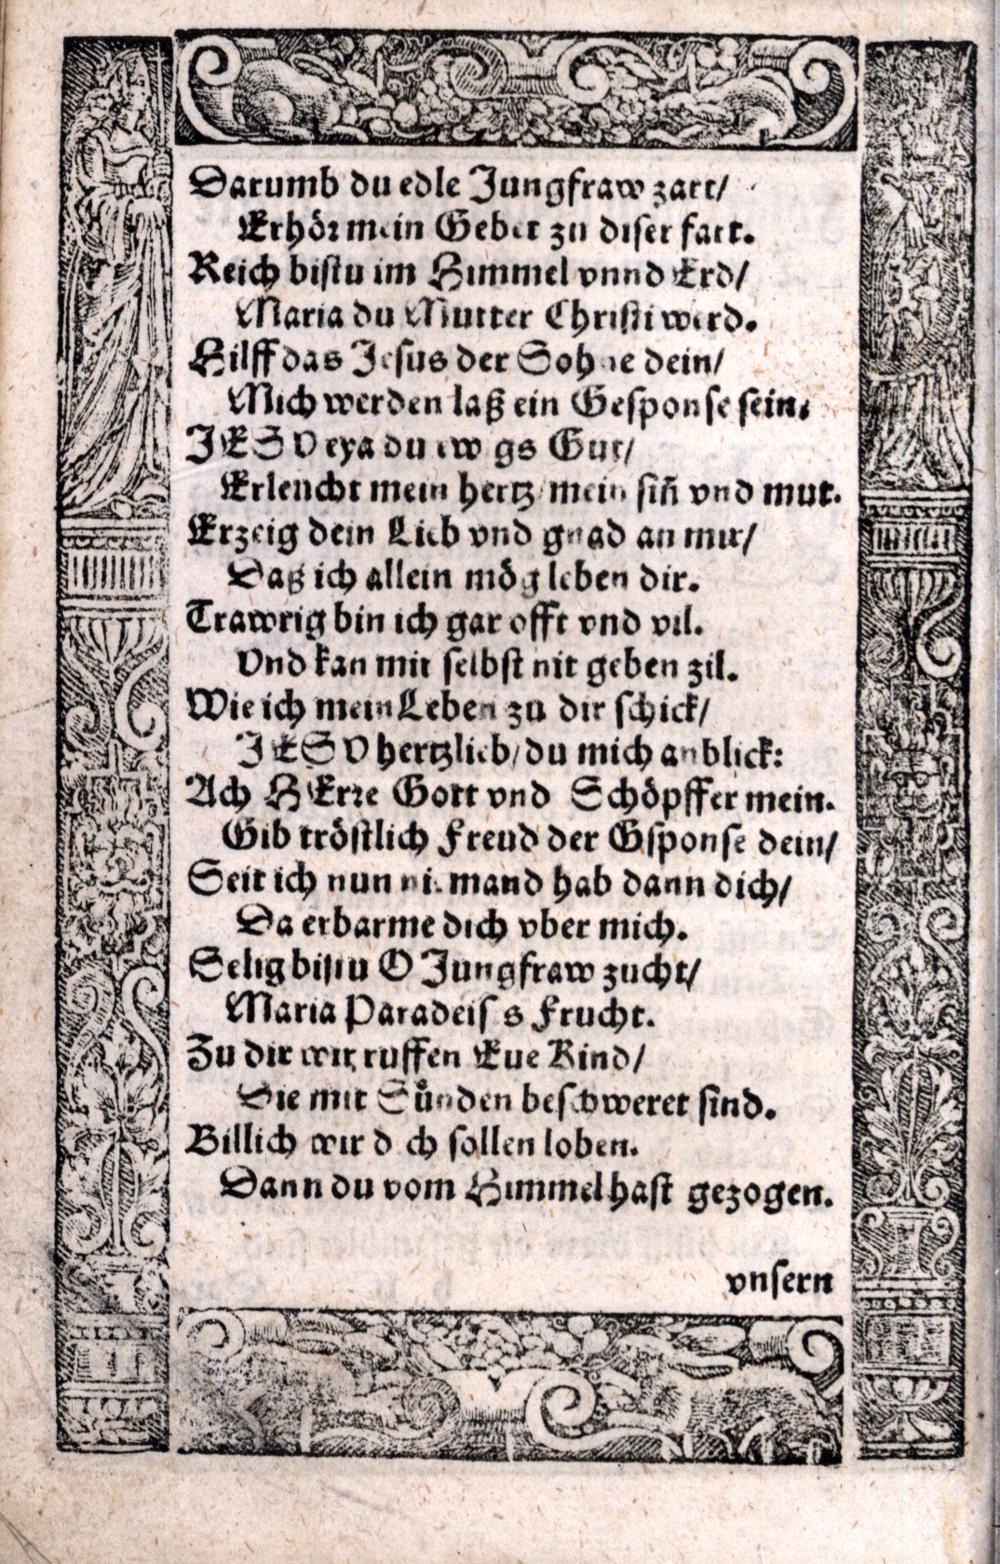 Darumb du edle Jungfraw zart/
Erhör mein Gebet zu diser fart.
Reich bistu im Himmel vnnd Erd/
Maria du Mutter Christi werd.
Hilff das Jesus der Sohne dein/
Mich werden laß ein Gesponse sein.
JESV eya du ewigs Gut/
Erleucht mein hertz/ mein siñ vnd mut.
Erzeig dein Lieb vnd gnad an mir/
Daß ich allein mög leben dir.
Trawrig bin ich gar offt vnd vil.
Vnd kan mir selbst nit geben zil.
Wie ich mein Leben zu dir schick/
JESV hertzlieb/ du mich anblick:
Ach HErre Gott vnd Schöpffer mein.
Gib tröstlich Freud der Gsponse dein/
Seit ich nun niemand hab dann dich/
Da erbarme dich vber mich.
Selig bistu O Jungfraw zucht/
Maria Paradeises Frucht.
Zu dir wir ruffen Eue Kind/
Die mit Sünden beschweret sind.
Billich wir dich sollen loben.
Dann du vom Himmel hast gezogen.
vnsern